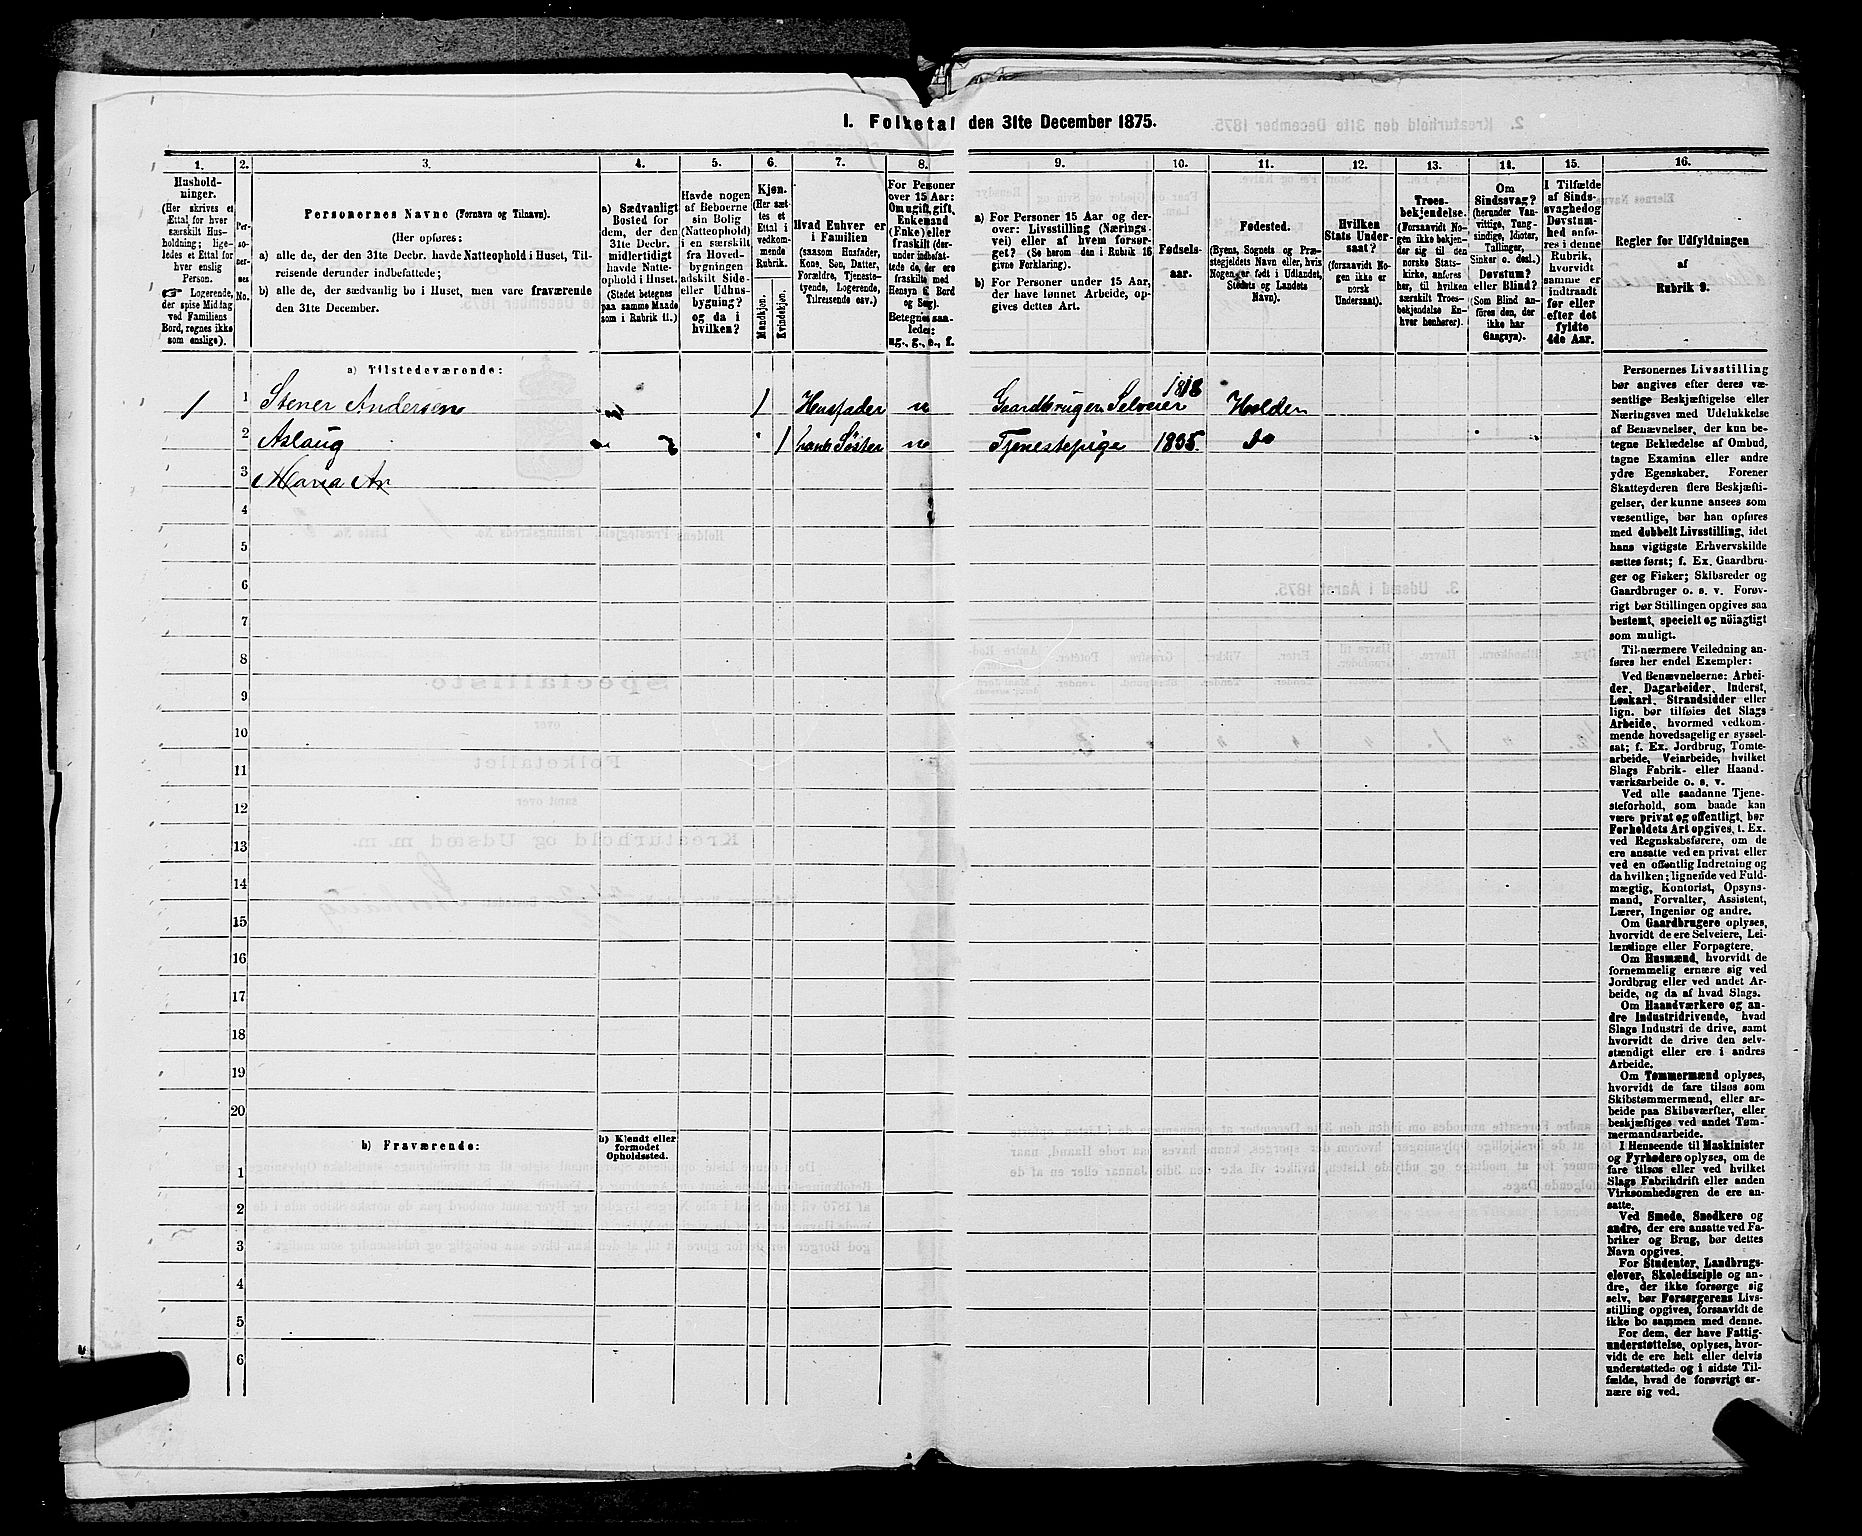 1. Folketal den 31te December 1875.
1. 2. 3. 4. 5. 6. 7. 8. 9. 10. 11. 12. 13. 14. 15. 16.
Hushold-
ninger.
(Her skrives et
Ettal for hver
særskilt Hus-
holdning; lige-
ledes et Ettal for
hver enslig
Person.
☞ Logerende,
der spise Middag
ved Familiens
Bord, regnes ikke
som enslige).
Per-
so-
ner-
nes
No.
Personernes Navne (Fornavn og Tilnavn).
(Her opføres:
a) alle de, der den 31te Decbr. havde Natteophold i Huset, Til-
reisende derunder indbefattede;
b) alle de, der sædvanlig bo i Huset, men vare fraværende
den 31te December.
a) Sædvanligt
Bosted for
dem, der den
31te Decbr.
midlertidigt
havde Natte-
ophold i Huset.
(Stedet betegnes
paa samme Maade
som i Rubrik 11.)
Havde nogen
af Beboerne
sin Bolig
(Natteophold)
i en særskilt
fra Hoved-
bygningen
adskilt Side-
eller Udhus-
bygning?
og da i
hvilken?
Kjøn.
(Her sæt-
tes et
Ettal i
vedkom-
mende
Rubrik.
Mandkjøn.
Kvindekjøn.
Hvad Enhver er
i Familien
(saasom Husfader,
Kone, Søn, Datter,
Forældre, Tjeneste-
tyende, Logerende,
Tilreisende osv.)
For Personer
over 15 Aar:
Om ugift, gift,
Enkemand
(Enke) eller
fraskilt (der-
under indbefat-
tede de, der ere
fraskilte med
Hensyn til Bord
og Seng).
Betegnes saa-
ledes:
ug., g., e., f.
a) For Personer 15 Aar og der-
over: Livsstilling (Nærings-
vei) eller af hvem forsør-
get? (Se herom den i Rubrik 16
givne Forklaring).
b) For Personer under 15 Aar,
der have lønnet Arbeide, op-
gives dettes Art.
Fødsels-
aar.
Fødested.
(Byens, Sognets og Præ-
stegjeldets Navn eller, hvis
Nogen er født i Udlandet,
Stedets og Landets
Navn).
Hvilken
Stats Under-
saat?
(forsaavidt No-
gen ikke er
norsk
Undersaat).
Troes-
bekjendelse.
(Forsaavidt No-
gen ikke bekjen-
der sig til den
norske Stats-
kirke, anføres
her, til hvilken
særskilt Troes-
bekjendelse En-
hver henhører).
Om
Sindssvag?
(herunder Van-
vittige, Tung-
sindige, Idioter,
Tullinger,
Sinker o. desl.).
Døvstum?
eller Blind?
(Som Blind an-
føres den, der
ikke har
Gangsyn).
I Tilfælde
af Sinds-
svaghed og
Døvstum-
hed anfø-
res i denne
Rubrik,
hvorvidt
samme er
indtraadt
før eller
efter det
fyldte
4de Aar.
Regler for Udfyldningen
af
Rubrik 9.
a) Tilstedeværende:
1 1 Stener Andersen 1 Husfader Gaardbruger Selveier 1818 Holden
2 Aslaug 1 hans Søster Tjenestepige 1835. do
3 Maria An
4
5
6
7
8
9
10
11
12
13
14
15
16
17
18
19
20
b) Fraværende:
b) Kjendt eller
formodet
Opholdssted.
1
2
3
4
5
6
Personernes Livsstilling
bør angives efter deres væ-
sentlige Beskjæftigelse eller
Næringsvei med Udelukkelse
af Benævnelser, der kun be-
tegne Beklædelse af Ombud,
tagne Examina eller andre
ydre Egenskaber. Forener
Skatteyderen flere Beskjæfti-
gelser, der kunne ansees som
væsentlige, bør han opføres
med dobbelt Livsstilling, idet
hans vigtigste Erhvervskilde
sættes først; f. Ex. Gaardbru-
ger og Fisker; Skibsreder og
Gaardbruger o. s. v. Forøv-
rigt bør Stillingen opgives saa
bestemt, specielt og nöiagtigt
som muligt.
Til nærmere Veiledning an-
føres her endel Exempler:
Ved Benævnelserne: Arbei-
der, Dagarbeider, Inderst,
Løskarl, Strandsidder eller
lign. bør tilføies det Slags
Arbeide, hvormed vedkom-
mende hovedsagelig er syssel-
sat; f. Ex. Jordbrug, Tomte-
arbeide, Veiarbeide, hvilket
Slags Fabrik- eller Haand-
værksarbeide o. s. v.
Ved alle saadanne Tjene-
steforhold, som baade kan
være privat og offentligt, bør
Forholdets Art opgives, t. Ex.
ved Regnskabsførere, om de
ere ansatte ved en privat eller
ved en offentlig Indretning og
da hvilken; lignende ved Fuld-
mægtig, Kontorist, Opsyns-
mand, Forvalter, Assistent,
Lærer, Ingeniør og andre.
Om Gaardbrugere oplyses,
hvorvidt de ere Selveiere, Lei-
lændinge eller Forpagtere.
Om Husmænd, hvorvidt de
fornemmelig ernære sig ved
Jordbrug eller ved andet Ar-
beide, og da af hvad Slags.
Om Haandværkere og an-
dre Industridrivende, hvad
Slags Industri de drive, samt
hvorvidt de drive den selv-
stændigt eller ere i andres
Arbeide.
Om Tømmermænd oplyses,
hvorvidt de fare tilsøs som
Skibstømmermænd, eller ar-
beide paa Skibsværfter, eller
beskjæftiges ved andet Tøm-
mermandsarbeide.
I Henseende til Maskinister
og Fyrbødere oplyses, om de
fare tilsøs eller ved hvilket
Slags Fabrikdrift eller anden
Virksomhedsgren de ere an-
satte.
Ved Smede, Snedkere og
andre, der ere ansatte ved Fa-
briker og Brug, bør dettes
Navn opgives.
For Studenter, Landbrugs-
elever, Skoledisciple og an-
dre, der ikke forsørge sig
selv, bør Forsørgerens Livs-
stilling opgives, forsaavidt de
ikke bo sammen med denne.
For dem, der have Fattig-
understøttelse, oplyses, hvor-
vidt de ere helt eller delvis
understøttede og i sidste Til-
fælde, hvad de forøvrigt er-
nære sig ved.